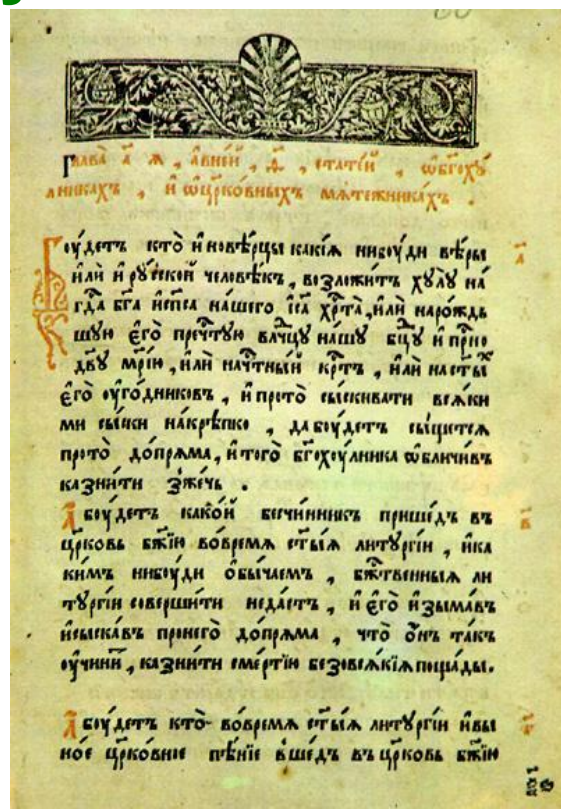 Глава̀ а҃ я , а в не́й , ѳ҃ , стате́й , ѡ бг҃охꙋ́
лникахъ , и ѡ цр҃ко́вныхъ мѧте́жника́хъ .
Бꙋ́детъ кто̀ и҆новѣ́рцы каки́ѧ нибꙋ́ди вѣ́ры
и҆лѝ и҆ рꙋ́сской человѣ́къ , возложи́тъ хꙋлꙋ̀ на́
гдⷭ҇а бг҃а и҆ сп҃са на́шего і҆с҃а хрⷭ҇та̀ , и҆лѝ наро́ждь
шꙋю є҆го̀ пречⷭ҇тꙋю влⷣчцꙋ на́шꙋ бцⷣꙋ и҆ при́сно
дв҃ꙋ мр҃і́ю , и҆лѝ на чⷭ҇тны́й крⷭ҇тъ , и҆лѝ на ст҃ы́хъ
є҆го̀ ᲂу҆го́дниковъ , и҆ про то̀ сы́скивати всѧ́ки
ми сы́ски на́крѣпко , да бꙋ́детъ сы́щетсѧ
про то̀ до́прѧма , и҆ того̀ бг҃охꙋ́лника ѡ҆бличи́въ
казни́ти зже́чь .
А҆ бꙋ́детъ како́й безчи́нникъ прише́дъ въ
цр҃ковь бж҃їю во́ времѧ ст҃ы́ѧ литꙋргі́и , и҆ ка
ки́мъ нибꙋ́ди о҆бы́чаемъ , бжⷭ҇твенныѧ ли
тꙋргі́и соверши́ти неда́стъ , и҆ є҆го̀ и҆зыма́въ
и҆ сыска́въ про него̀ до́прѧма , что̀ о҆́нъ та́къ
ᲂу҆чини́тъ , казни́ти сме́ртїю безо всѧ́кїѧ поща́ды.
А҆ бꙋ́детъ кто̀ во́ времѧ ст҃ы́ѧ литꙋргі́и и҆ в ы
но́е цр҃ко́вное пѣ́нїе вше́дъ въ цр҃ковь бж҃їю